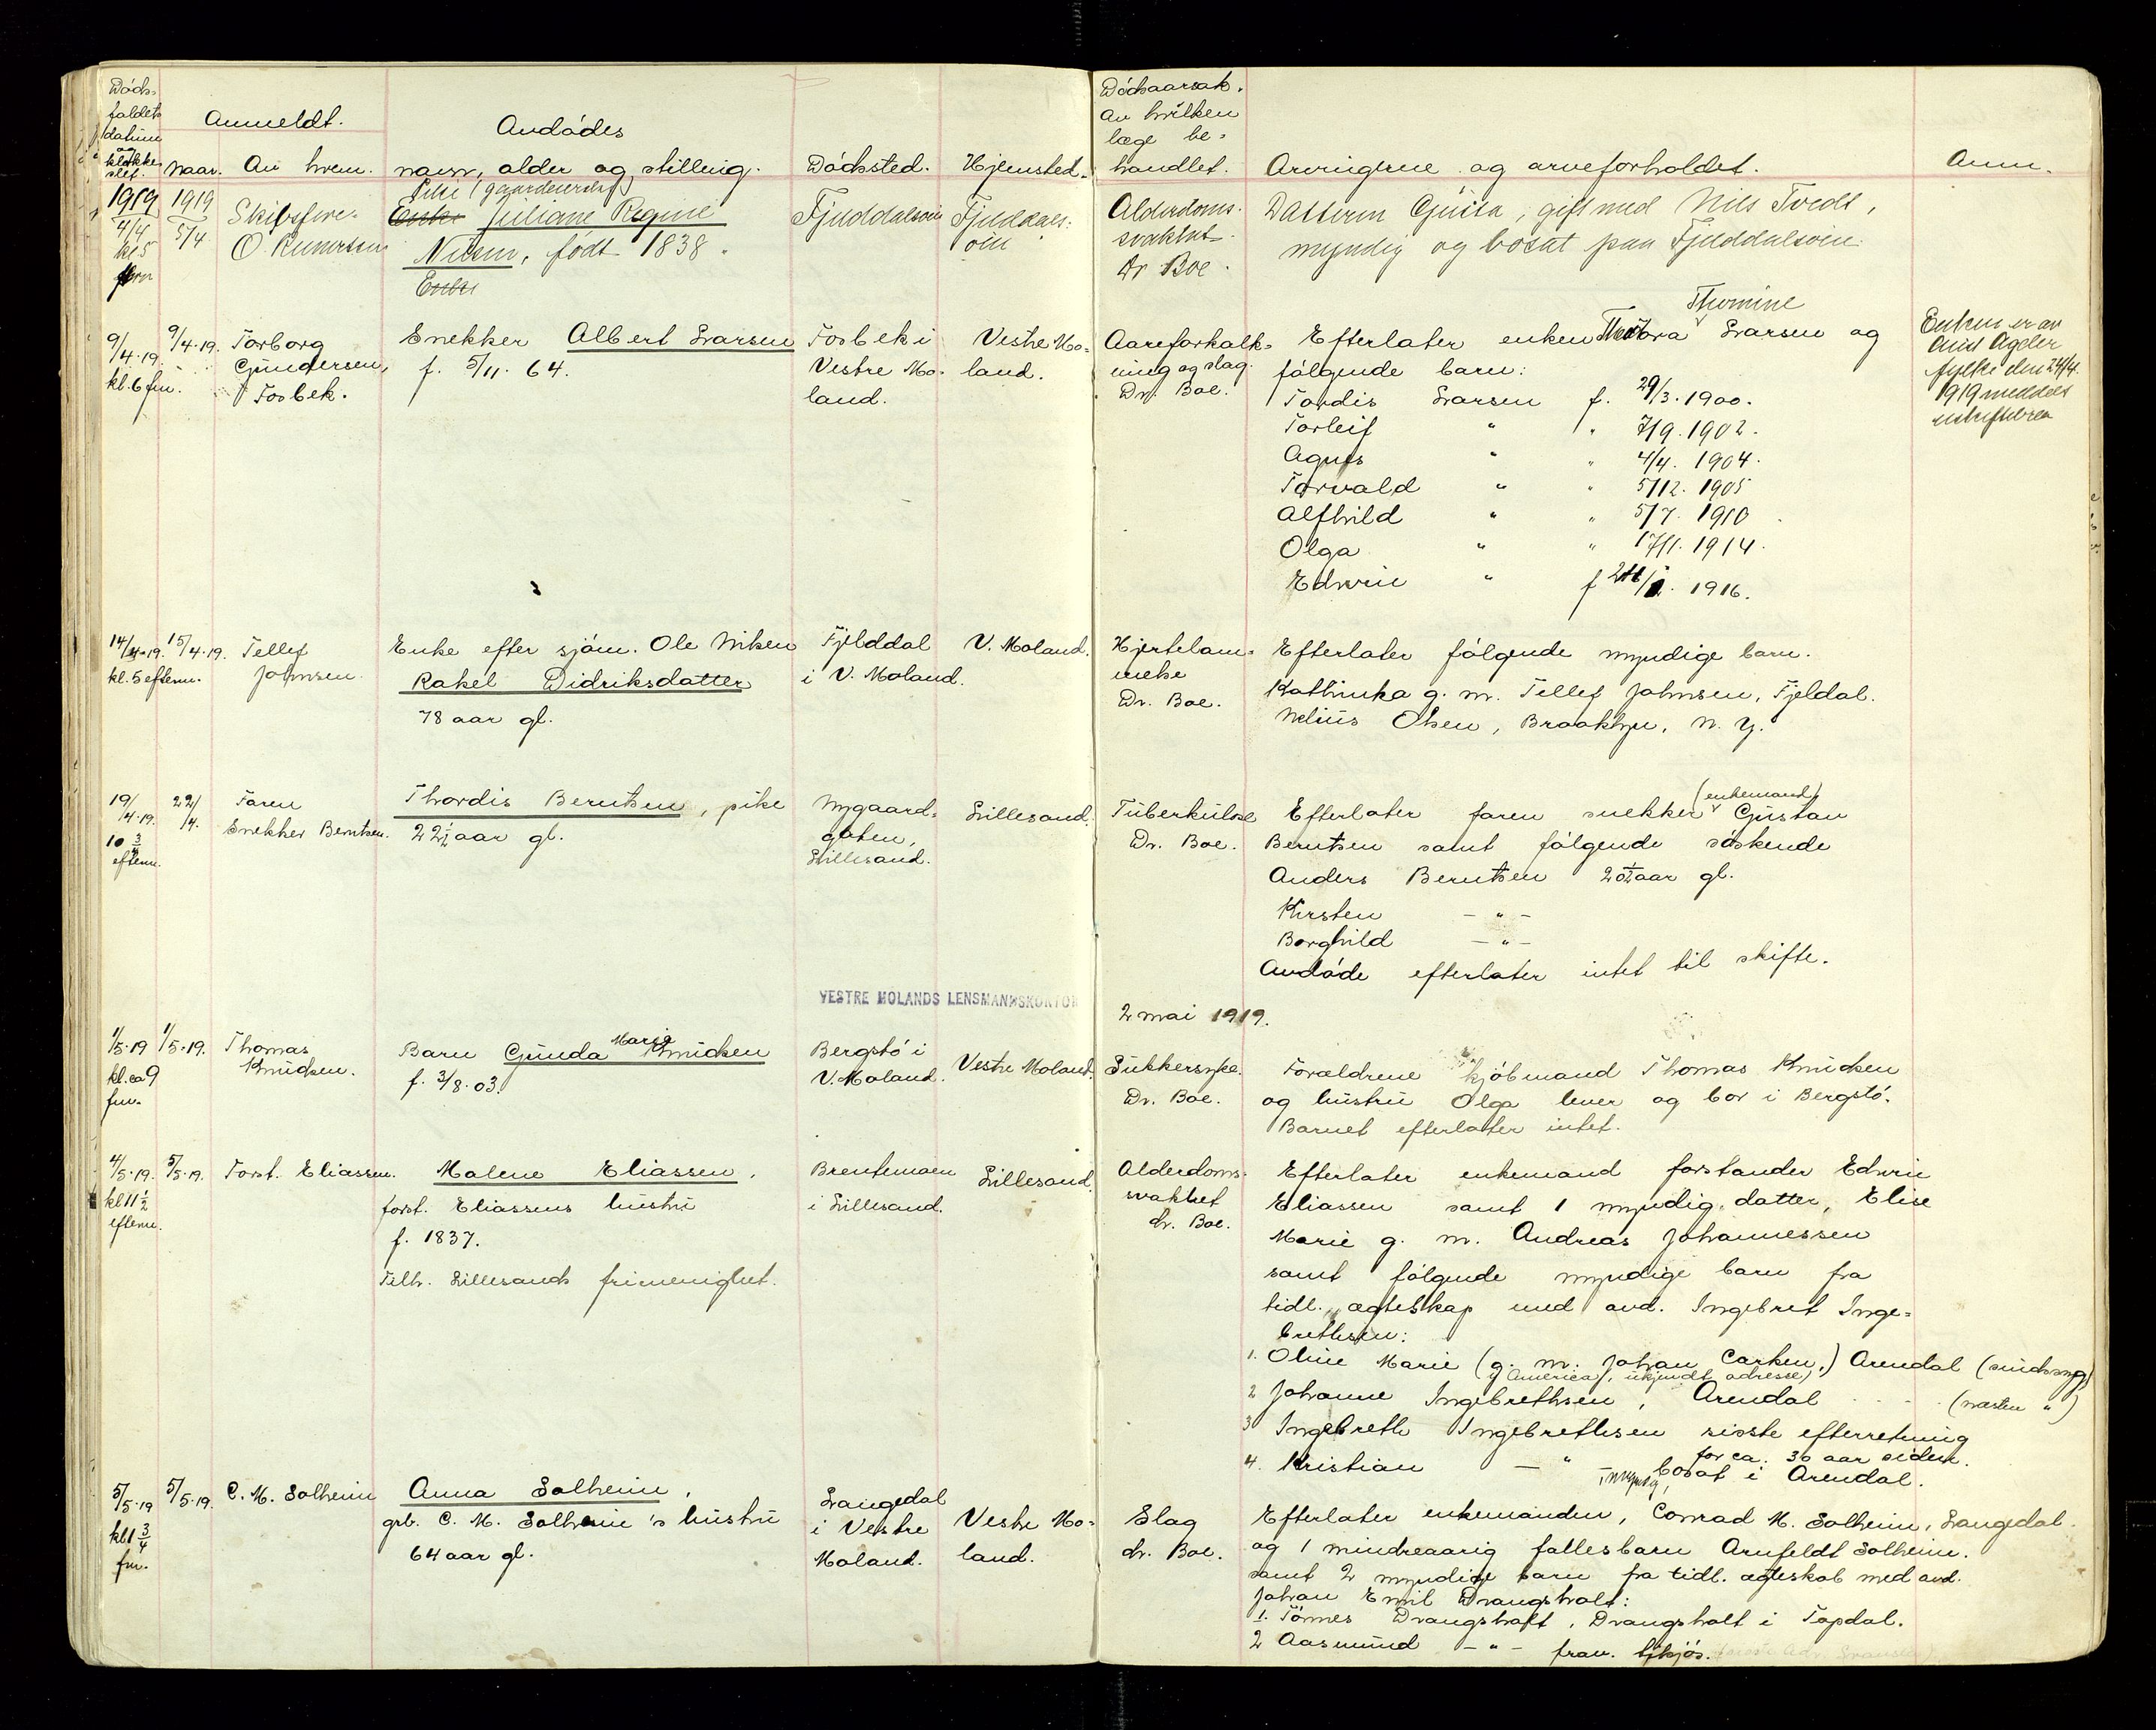 Döds-
faldets
datum
og
klokke-
slet.
Anmeldt.
naar.
Av hvem.
Avdödes
navn, alder og stilling.
Dödssted.
Hjemsted.
Dödsaarsak.
Av hvilken
læge be-
handlet.
Arvingerne og arveforholdet.
Anm.
1919
4/4
kl 5
fm
1919
5/4
Skibsføre-
O.
Pike (gaardeierske)
Enke Juliane Regine
Nilsen, født 1838.
Enke
Fjelddalsøien
Fjelddals-
øien
Alderdoms-
svakhet
Dr Boe.
Datteren Gusta, gift med Nils Tvedt,
myndig og bosat paa Fjelddalsøien.
9/4.19.
kl. 6 fm.
9/4.19.
Torborg
Gundersen,
Fosbek.
Snekker Albert Larsen
f. 5/11. 64.
Fosbek i
Vestre Mo-
land.
Vestre Mo-
land.
Aareforkalk-
ning og slag.
Dr. Boe.
Thomine
Efterlater enken Teodora Larsen og
følgende barn:
Tordis Larsen f. 29/3. 1900.
Torleif " " 7/9. 1902.
Agnes " " 4/4. 1904.
Torvald " " 5/12. 1905
Alfhild " " 5/7. 1910
Olga " " 17/1. 1914.
Edwin " f 1916.
Enken er av
Aust Agder
fylke den 24/4.
1919 meddelt
uskiftebrev
14/4.19.
kl. 5 efterm.
15/4.19.
Tellef
Johnsen.
Enke efter sjöm. Ole Nilsen
Rakel Didriksdatter
78 aar gl.
Fjelddal
i V. Moland.
V. Moland.
Hjertelam-
melse
Dr. Boe.
Efterlater følgende myndige barn.
Kathinka g. m. Tellef Johnsen, Fjeldal.
Nelius Olsen, Brooklyn, N. Y.
19/4.19.
10 3/4
efterm.
22/4.
Faren
Snekker Berntsen.
Thordis Berntsen, pike
22 1/2 aar gl.
Nygaard-
gaten,
Lillesand.
Lillesand.
Tuberkulose
Dr. Boe.
(enkemand)
Efterlater faren snekker Gustav
Berntsen samt følgende söskende
Anders Berntsen 20 1/2 aar gl.
Kirsten - " -
Borghild - " -
Avdöde efterlater intet til skifte.
VESTRE MOLANDS LENSMANNSKONTOR
2 mai 1919.
1/5.19
kl. ca 9
fm.
1/5.19.
Thomas
Knudsen.
Marie
Barn Gunda Knudsen
f. 3/8. 03.
Bergstö i
V. Moland.
Vestre Moland.
Sukkersyke.
Dr. Boe.
Forældrene kjöbmand Thomas Knudsen
og hustru Olga lever og bor i Bergstö.
Barnet efterlater intet.
4/5.19.
kl 11 1/2
efterm.
5/5.19.
Forst. Eliassen.
Malene Eliassen,
forst. Eliassens hustru
f. 1837.
Tilh. Lillesands frimenighet.
Brentemoen
i Lillesand.
Lillesand.
Alderdoms-
svakhet
dr. Boe.
Efterlater enkemand forstander Edwin
Eliassen samt 1 myndig datter, Elise
Marie g. m. Andreas Johannessen
samt følgende myndige barn fra
tidl. ægteskap med avd. Ingebret Inge-
brethsen:
1. Oline Marie (g. m. Johan Carlsen,) Arendal (sindssyg)
(i America, ukjendt adresse)
2 Johanne Ingebrethsen, Arendal (næsten ")
3 Ingebreth Ingebrethsen sisste efterretning
for ca. 30 aar siden.
4. Kristian - " - bosat i Arendal.
5/5.19
kl 1 3/4
fm.
5/5.19.
C. M. Solheim
Anna Solheim,
grb. C. M. Solheim's hustru
64 aar gl.
Langedal
i Vestre
Moland.
Vestre Mo-
land.
Slag
dr. Boe.
Efterlater enkemanden, Conrad M. Solheim, Langedal.
og 1 mindreaarig fællesbarn Arnfeldt Solheim.
samt 2 myndige barn fra tidl. ægteskab med avd.
Johan Emil Drangsholt:
1. Tönnes Drangsholt, Drangsholt i Topdal.
2 Aasmund - " - frav. tilsjös.